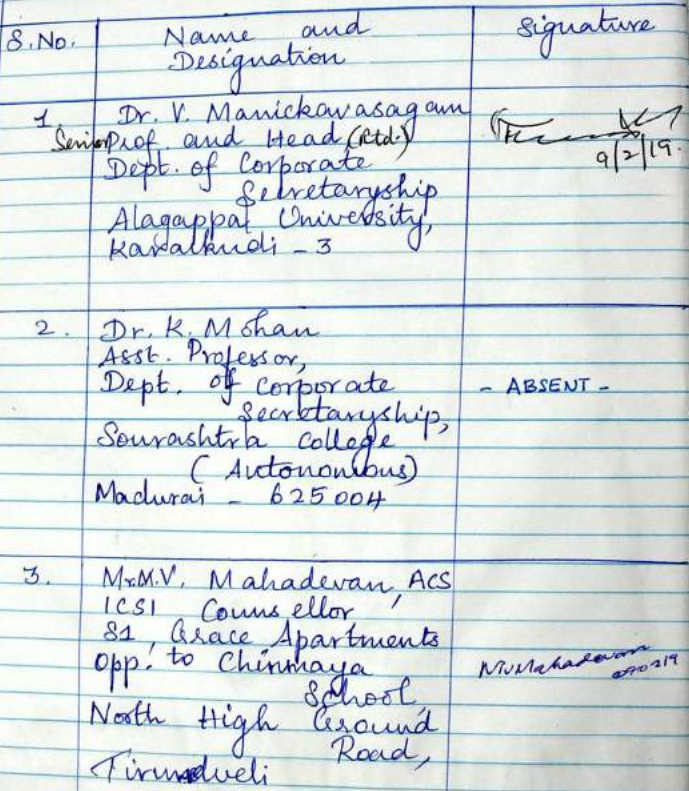 S.No. Name and Designation Signature
1. Dr. V. Manickavasagam
Senior Prof. and Head (Rtd.)
Dept. of Corporate
Secretaryship
Alagappa University,
Karaikudi - 3
9/2/19.
2. Dr. K. Mohan
Asst. Professor,
Dept. of Corporate - ABSENT -
Secretaryship,
Sourashtra College
(Autonomous)
Madurai - 625004
3. Mr.M.V. Mahadevan, ACS
ICSI Counsellor
81, Grace Apartments
Opp. to Chinmaya M.V.Mahadevan
School,
North High Ground
Road,
Tirunelveli